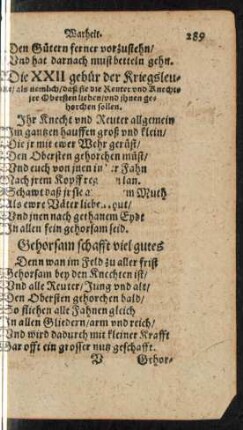 Warheit. 289
Den Gütern ferner vorzustehn/
Vnd hat darnach must betteln gehn.
Die XXII gebür der Kriegsleu-
als nemlich/ daß sie die Reuter vnd Knechte
jre Obersten lieben/ vnd jhnen ge-
horchen sollen.
Ihr Knecht vnd Reuter allgemein
Im gantzen hauffen groß vnd klein/
Die jr mit ewer Wehr gerüst/
Den Obersten gehorchen müst/
Vnd euch von jnen in Fahn
Nach jrem Kopff lan.
Schawt daß jr sie Muth
Als ewre Väter liebe gut/
Vnd jnen nach gethanem Eydt
In allen fein gehorsam seid.
Gehorsam schafft viel gutes
Denn wan im Feld zu aller frist
Gehorsam bey den Knechten ist/
Vnd alle Reuter/ Jung vnd alt/
Den Obersten gehorchen bald/
So fliehen alle Fahnen gleich
In allen Gliedern/ arm vnd reich/
Vnd wird dadurch mit kleiner Krafft
Gar offt ein grosser nutz geschafft.
V Gehor-